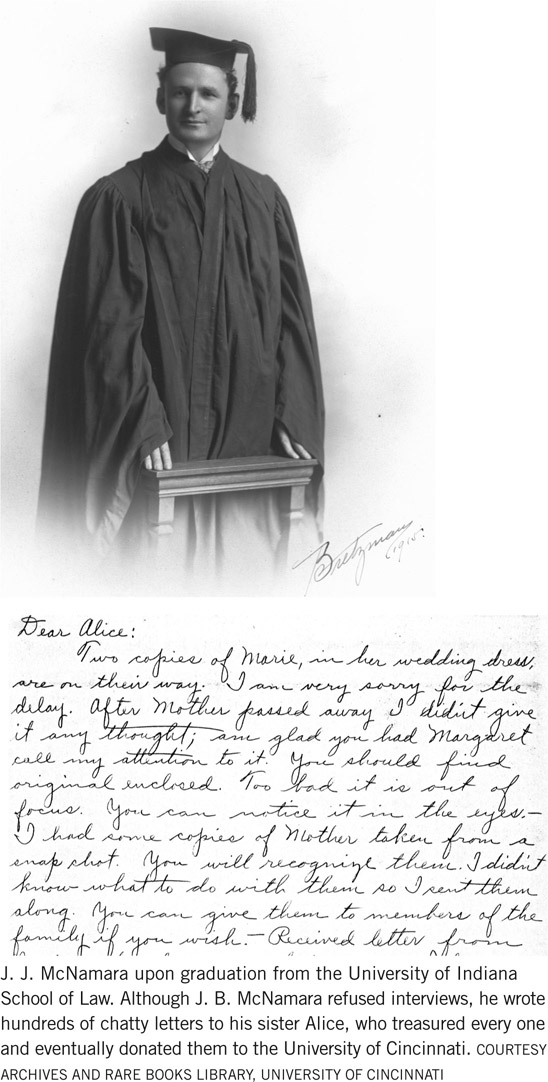 Bretzman
1915.
Dear Alice:
Two copies of Marie, in her wedding dress,
are on their way. I am very sorry for the
delay. After Mother passed away I didn't give
it any thought; am glad you had Margaret
call my attention to it. You should find
original enclosed. Too bad it is out of
focus. You can notice it in the eyes.—
I had some copies of Mother taken from a
snap shot. You will recognize them. I didn't
know what to do with them so I sent them
along. You can give them to members of the
family if you wish.— Received letter from
J. J. McNamara upon graduation from the University of Indiana
School of Law. Although J. B. McNamara refused interviews, he wrote
hundreds of chatty letters to his sister Alice, who treasured every one
and eventually donated them to the University of Cincinnati. COURTESY
ARCHIVES AND RARE BOOKS LIBRARY, UNIVERSITY OF CINCINNATI